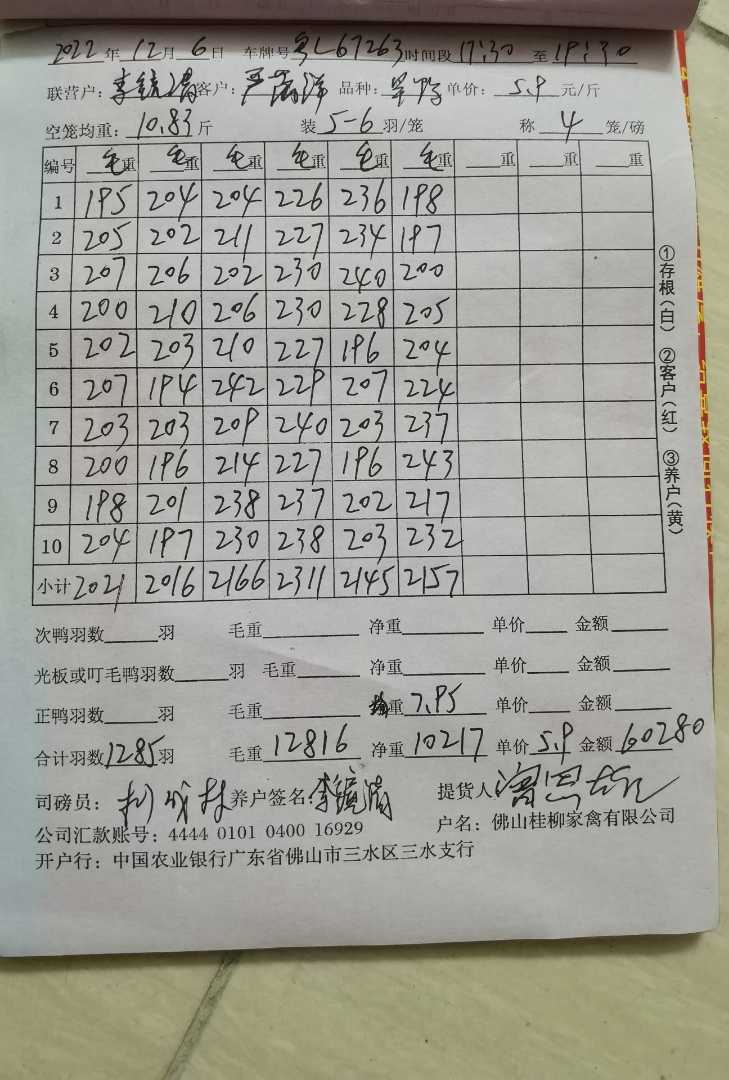 2022年12月6日 车牌号粤L67263时间段17:30至19:30
联营户:李镜清客户:严 洋 品种: 鸭 单价:5.9元/斤
空笼均重:10.83斤 装5-6羽/笼 称4笼/磅
编号 毛重 毛重 毛重 毛重 毛重 毛重 重 重 重
1 195 204 204 226 236 198
2 205 202 211 227 234 197
3 207 206 202 230 240 200
4 200 210 206 230 228 205
5 202 203 210 227 196 204
6 207 194 242 229 207 224
7 203 203 209 240 203 237
8 200 196 214 227 196 243
9 198 201 238 237 202 217
10 204 197 230 238 203 232
小计 2021 2016 2166 2311 2145 2157
次鸭羽数 羽 毛重 净重 单价 金额
光板或叮毛鸭羽数 羽 毛重 净重 单价 金额
正鸭羽数 羽 毛重 重7.95 单价 金额
合计羽数1285羽 毛重12816 净重10217 单价5.9 金额60280
司磅员: 养户签名:李镜清 提货人
公司汇款账号:4444 0101 0400 16929 户名:佛山桂柳家禽有限公司
开户行:中国农业银行广东省佛山市三水区三水支行
①存根(白) ②客户(红) ③养户(黄)